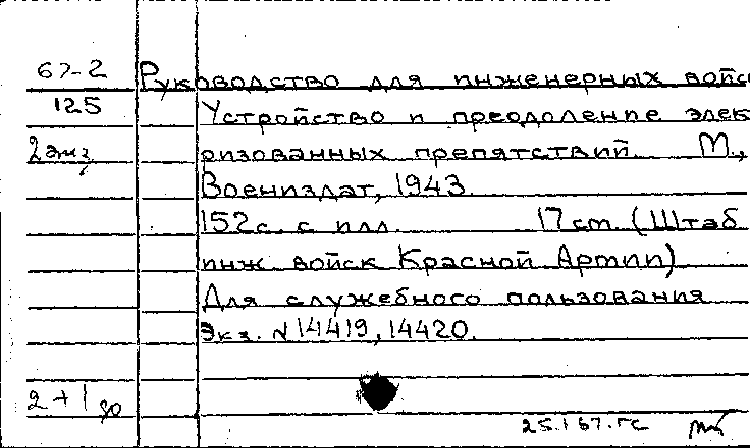 67-2 Руководство для инженерных войс
125 Устройство и преодоление элек
2 экз ризованных препятствий. М.,
Воениздат, 1943.
152с. с илл. 17 см. (Штаб
инж. войск Красной Армии)
Для служебного пользования
Экз. № 14419, 14420.
2+1
25.1 67.гс